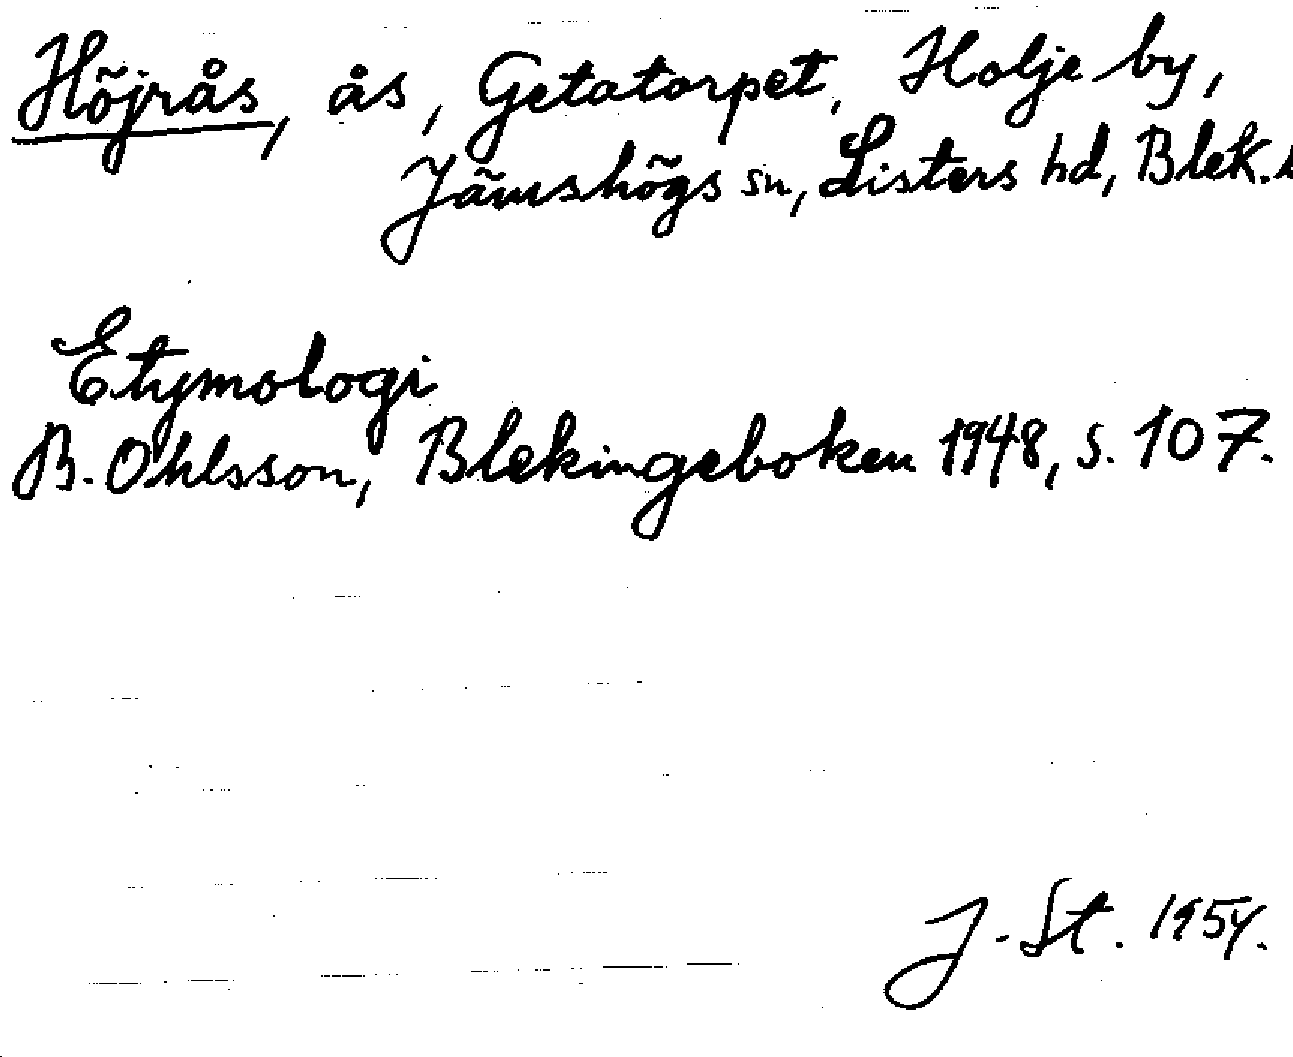 Höjrås, ås, Getatorpet, Holje by,
Jämshögs sn, Listers hd, Blek.
Etymologi
B. Ohlsson, Blekingeboken 1948, s. 107.
J. St. 1954.